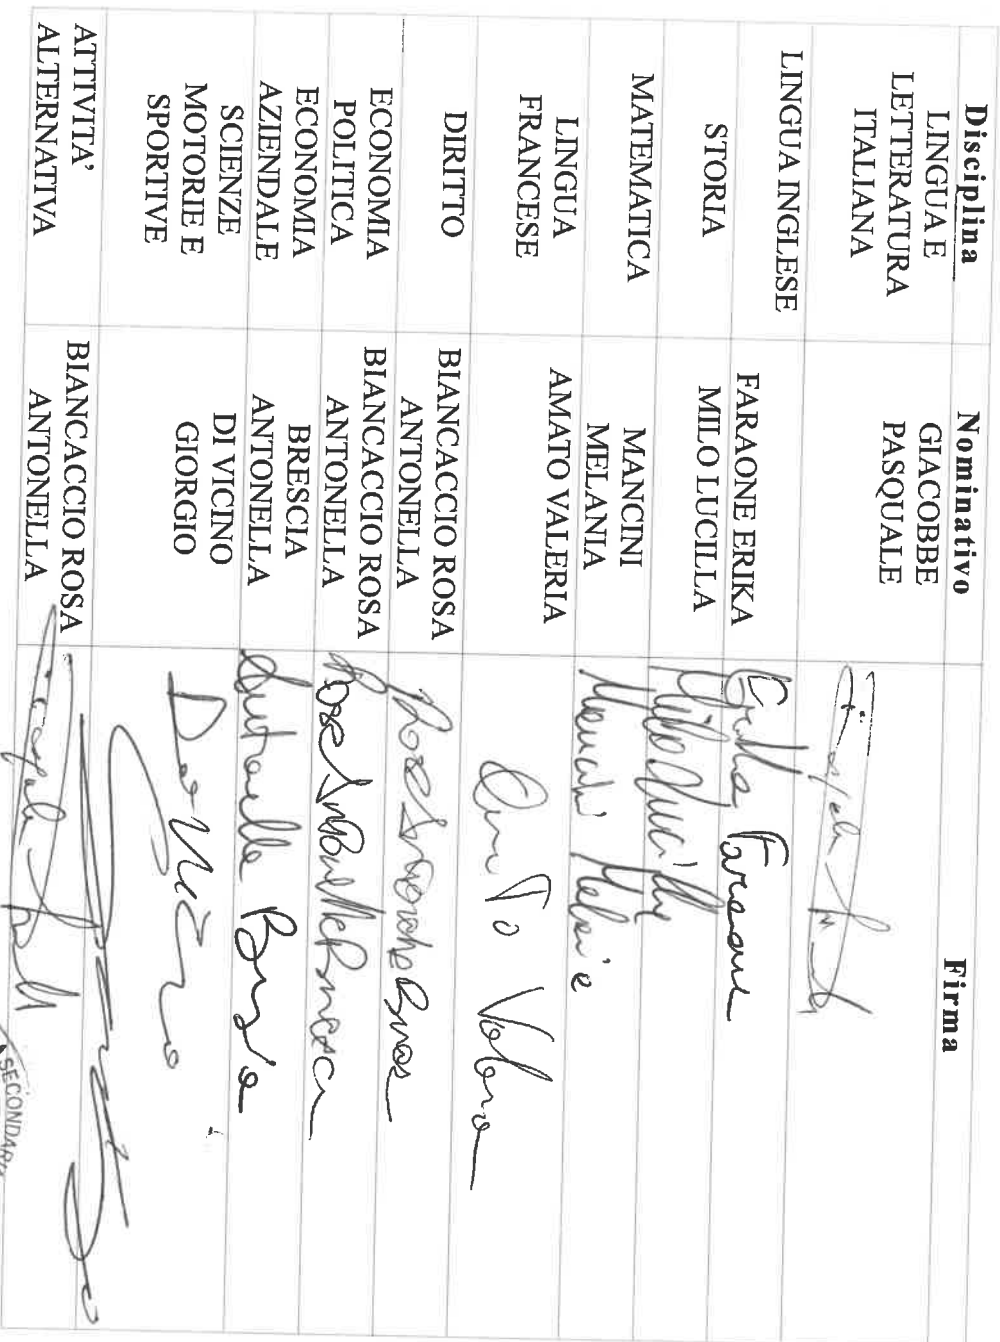 Disciplina Nominativo Firma
LINGUA E
LETTERATURA
ITALIANA
GIACOBBE
PASQUALE
LINGUA INGLESE
FARAONE ERIKA
Erika Faraone
STORIA
MILO LUCILLA
Milo Lucilla
MATEMATICA
MANCINI
MELANIA
Mancini Melania
LINGUA
FRANCESE
AMATO VALERIA
Amato Valeria
DIRITTO
BIANCACCIO ROSA
ANTONELLA
Rosa
ECONOMIA
POLITICA
BIANCACCIO ROSA
ANTONELLA
Rosa
ECONOMIA
AZIENDALE
BRESCIA
ANTONELLA
Antonella Brescia
SCIENZE
MOTORIE E
SPORTIVE
DI VICINO
GIORGIO
ATTIVITA'
ALTERNATIVA
BIANCACCIO ROSA
ANTONELLA